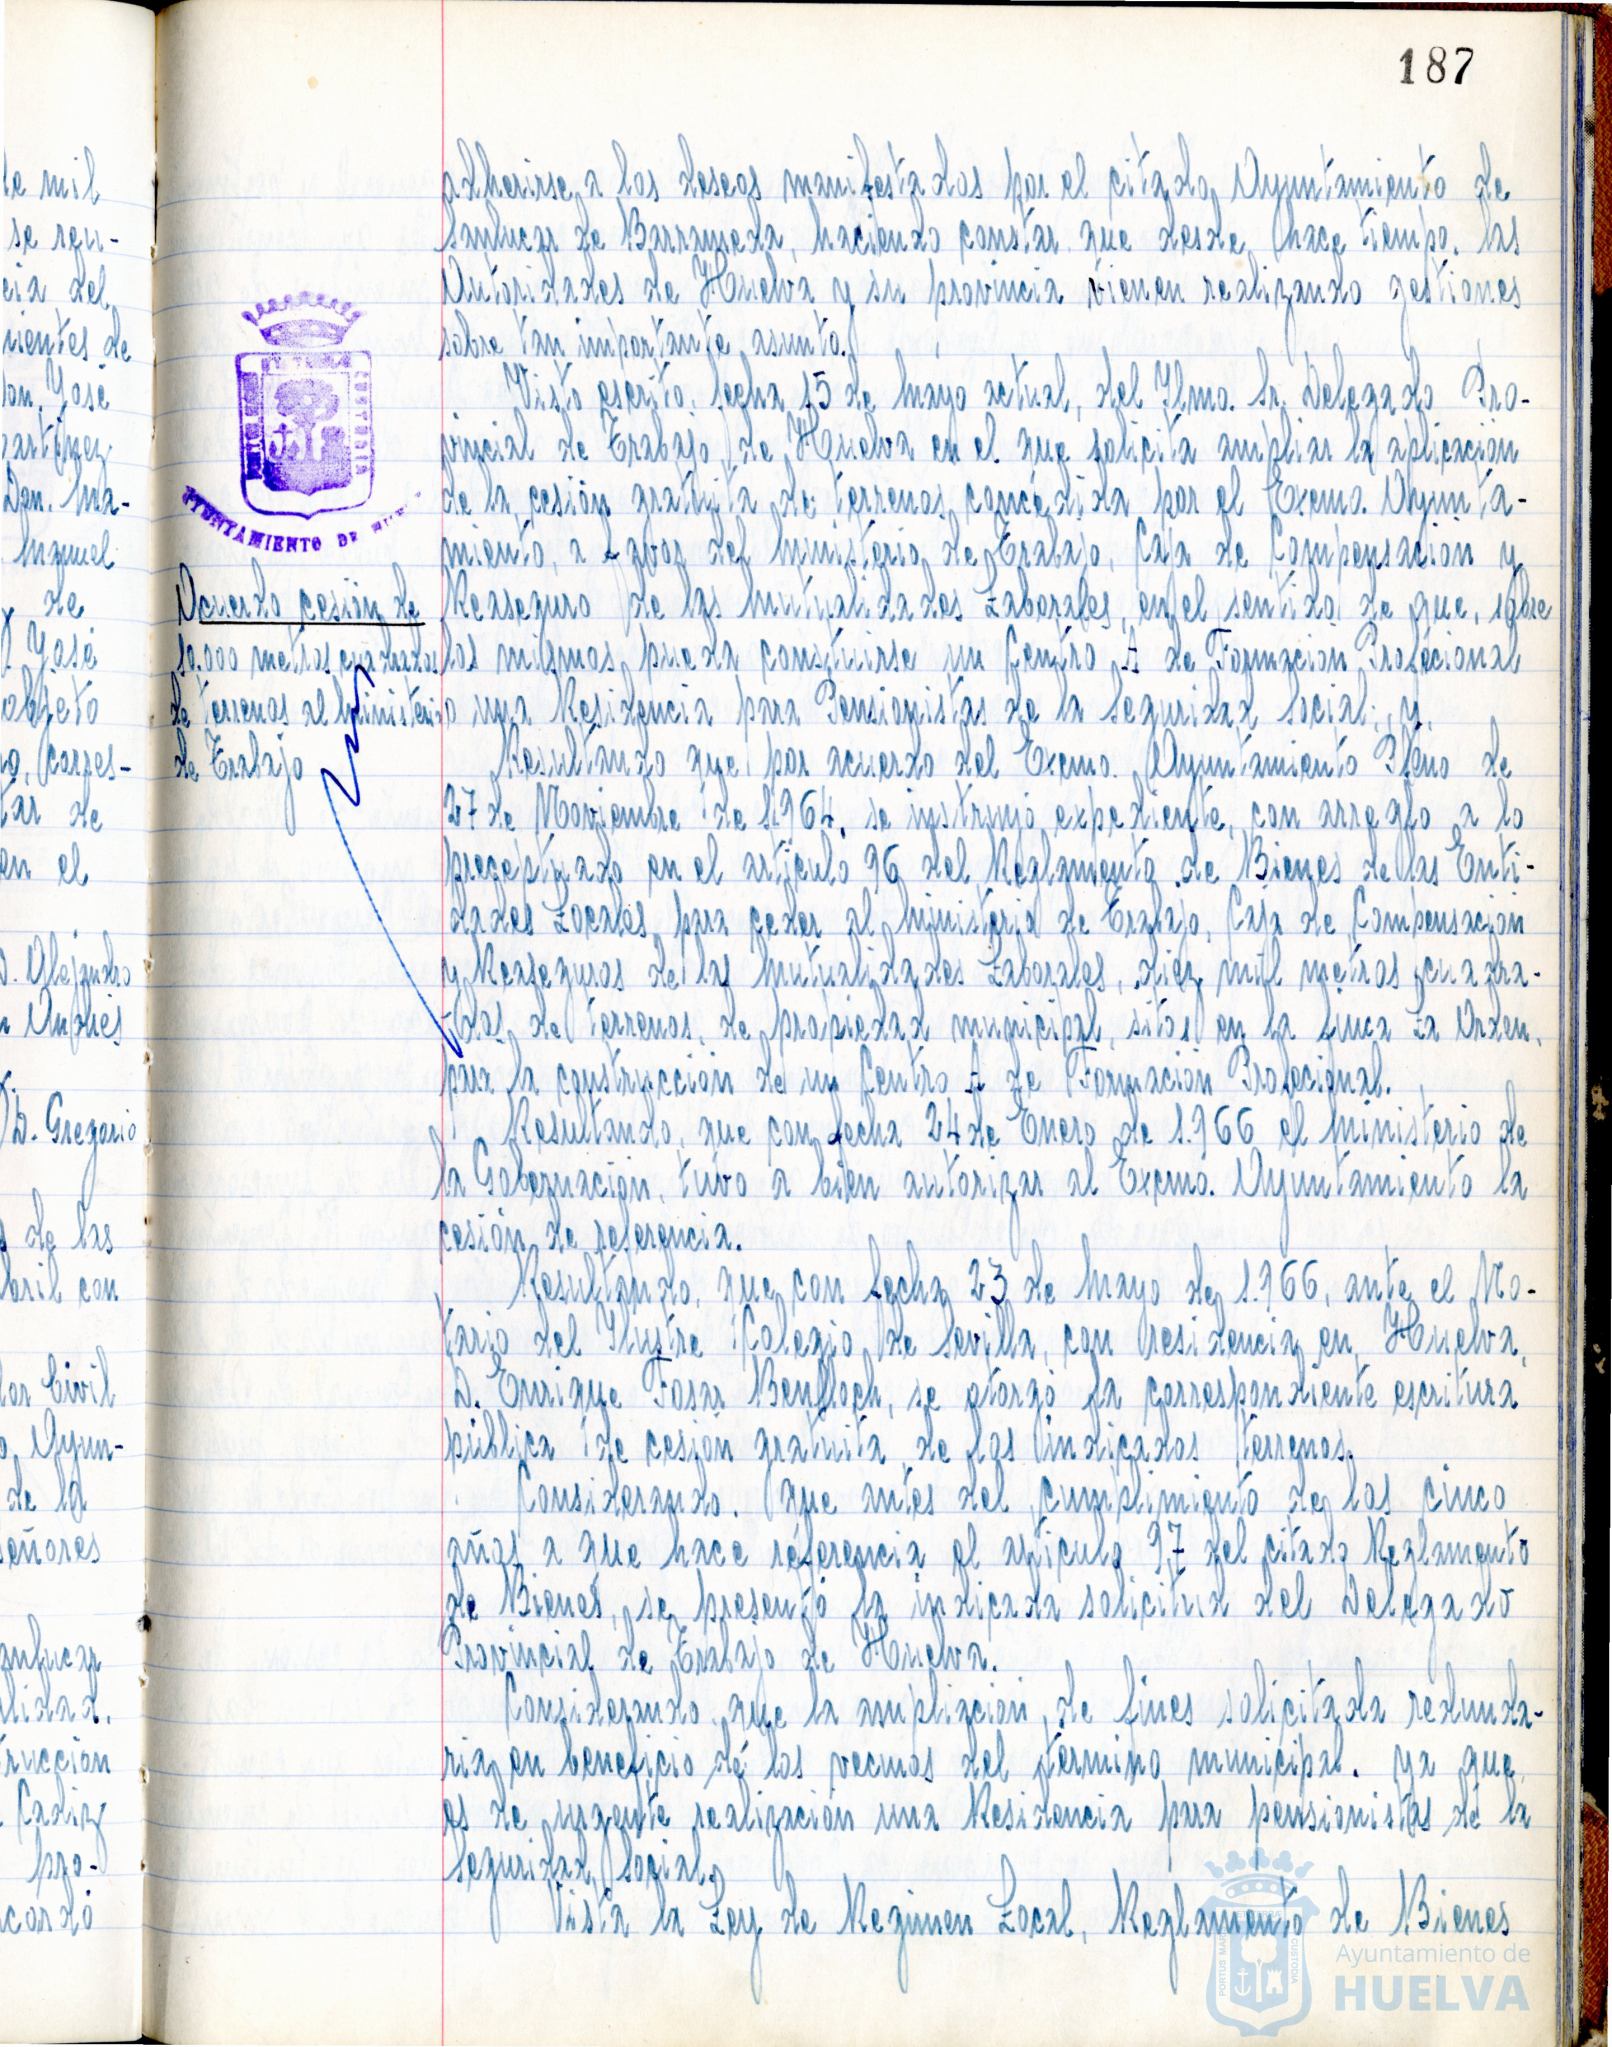 187
adherirse a los deseos manifestados por el citado Ayuntamiento de
Sanlucar de Barrameda, haciendo constar que desde hace tiempo las
Autoridades de Huelva y su provincia vienen realizando gestiones
sobre tan importante asunto.
Visto escrito, fecha 15 de Mayo actual, del Ylmo. Sr. Delegado Pro-
vincial de Trabajo de Huelva en el que solicita ampliar la aplicación
de la cesión gratuita de terrenos concedida por el Excmo. Ayunta-
miento, a favor del Ministerio de Trabajo, Caja de Compensación y
Reaseguro de las Mutualidades Laborales, en el sentido de que, sobre
los mismos pueda construirse un Centro A de Formación Profecional
o una Residencia para Pensionistas de la Seguridad Social; y,
Resultando que por acuerdo del Excmo. Ayuntamiento Pleno de
27 de Noviembre de 1.964, se instruyó expediente, con arreglo a lo
preceptuado en el artículo 96 del Reglamento de Bienes de las Enti-
dades Locales, para ceder al Ministerio de Trabajo, Caja de Compensación
y Reaseguros de las Mutualidades Laborales, diez mil metros cuadra-
dos de terrenos, de propiedad municipal, sitos en la finca La Orden,
para la construcción de un Centro A de Formación Profecional.
Resultando, que con fecha 24 de Enero de 1.966 el Ministerio de
la Gobernación, tuvo a bien autorizar al Excmo. Ayuntamiento la
cesión de referencia.
Resultando, que con fecha 23 de Mayo de 1.966, ante el No-
tario del Ilustre Colegio de Sevilla, con residencia en Huelva,
D. Enrique Fosar Benlloch, se otorgó la correspondiente escritura
pública de cesión gratuita de los indicados terrenos.
Considerando. Que antes del cumplimiento de los cinco
años a que hace referencia el artículo 97 del citado Reglamento
de Bienes, se presentó la indicada solicitud del Delegado
Provincial de Trabajo de Huelva.
Considerando que la ampliación de fines solicitada redunda-
ria en beneficio de los vecinos del termino municipal. ya que
es de urgente realización una Residencia para pensionistas de la
Seguridad Social.
Vista la Ley de Regimen Local, Reglamento de Bienes
AYUNTAMIENTO DE
Acuerdo cesión de
10.000 metros cuadrados
de terrenos al Ministerio
de Trabajo
de mil
se reu-
cia del
nientes de
Don José
Martinez
Don Ma-
Manuel
de
José
objeto
corres-
tar de
en el
D. Alejandro
Andrés
D. Gregorio
de las
Abril con
Civil
Ayun-
de la
señores
Sanlucar
trucción
Cadiz
pro-
acordó
PORTUS MARIS
CUSTODIA
Ayuntamiento de
HUELVA